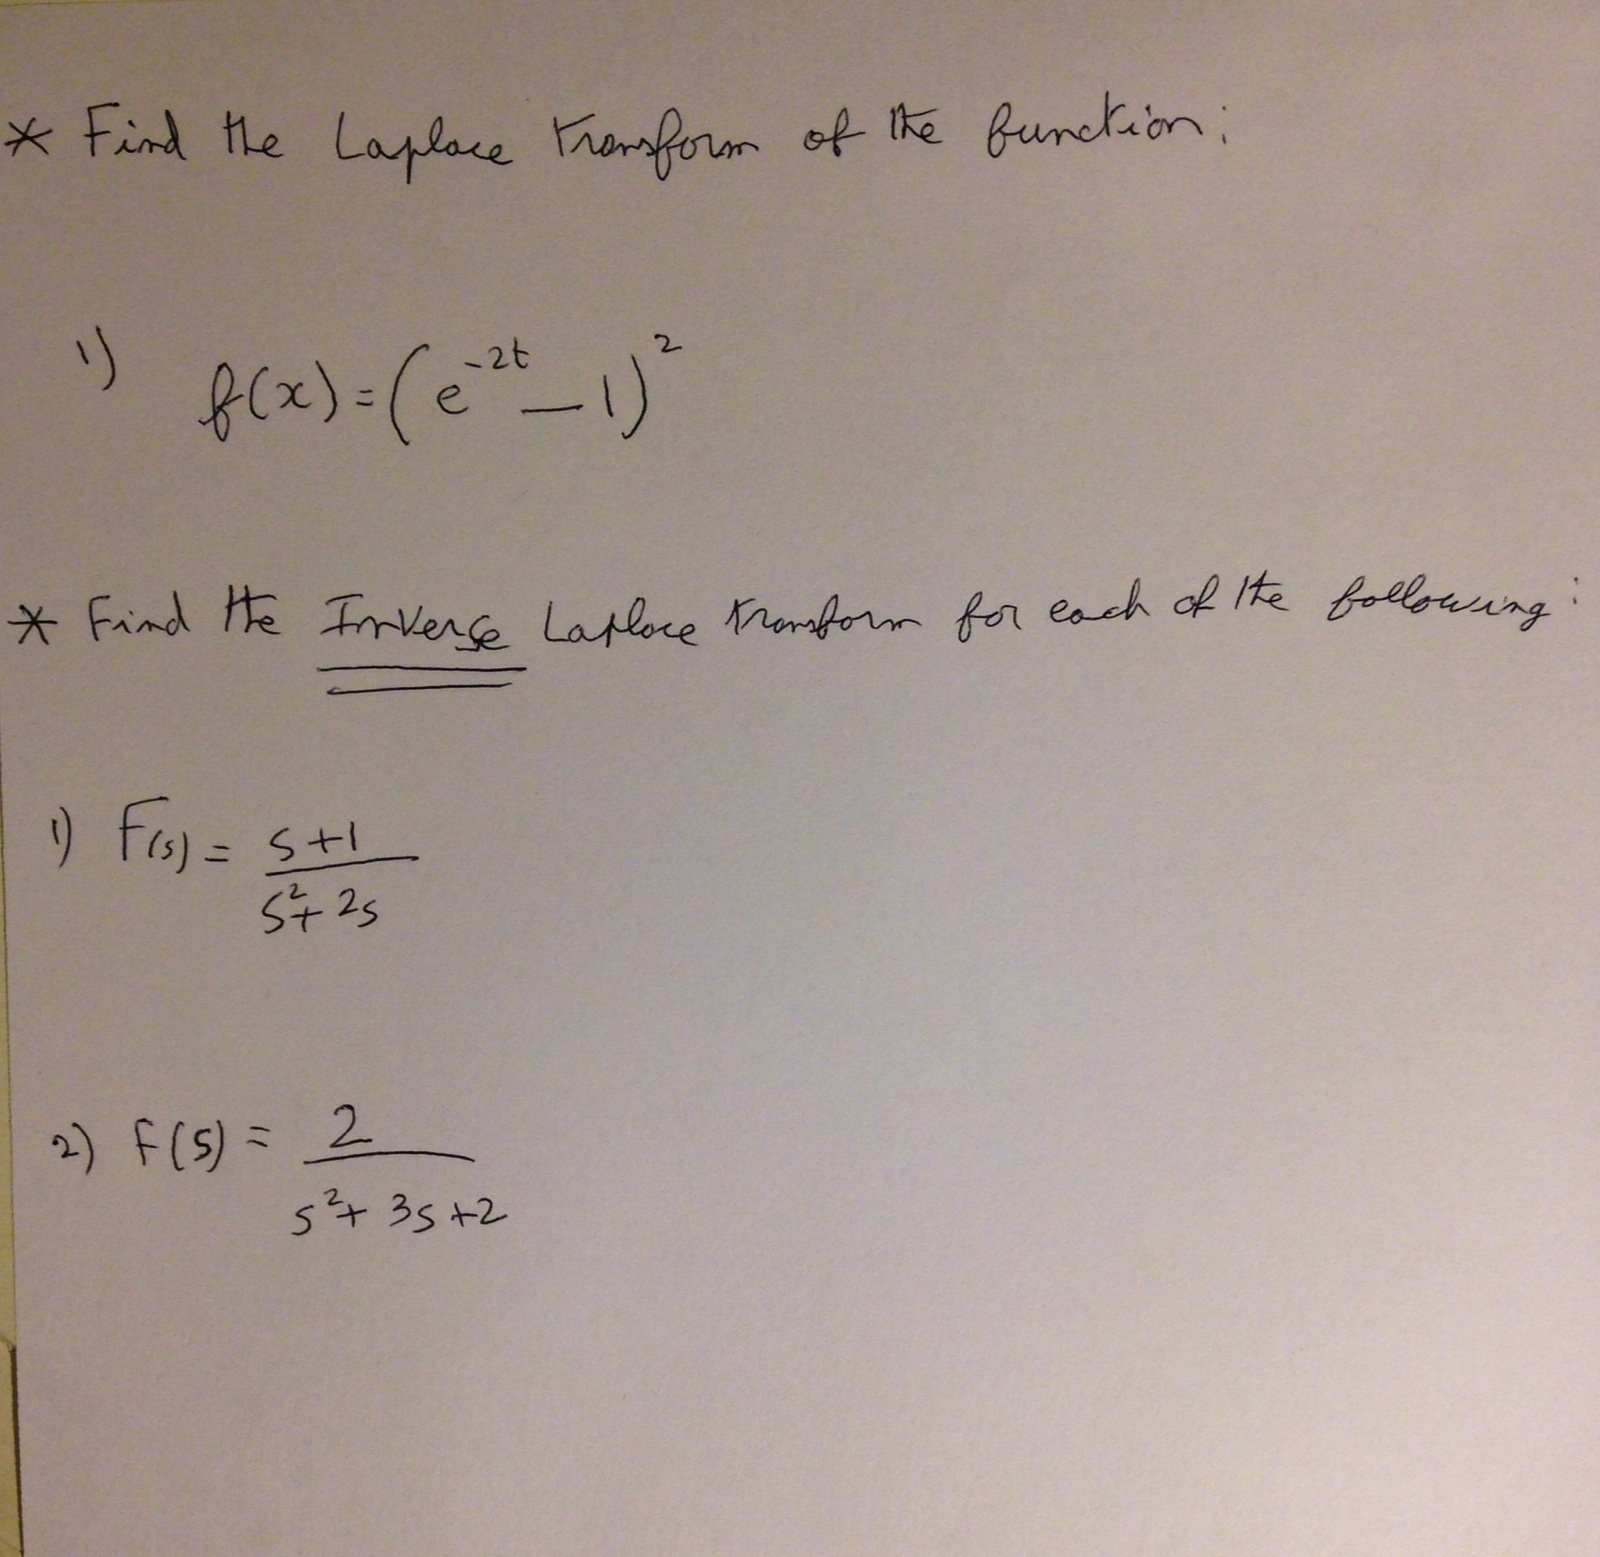 * Find the Laplace transform of the function:
1) f(x) = (e^-2t - 1)^2
* Find the Inverse Laplace transform for each of the following:
1) F(s) = s+1 / s^2 + 2s
2) F(s) = 2 / s^2 + 3s + 2